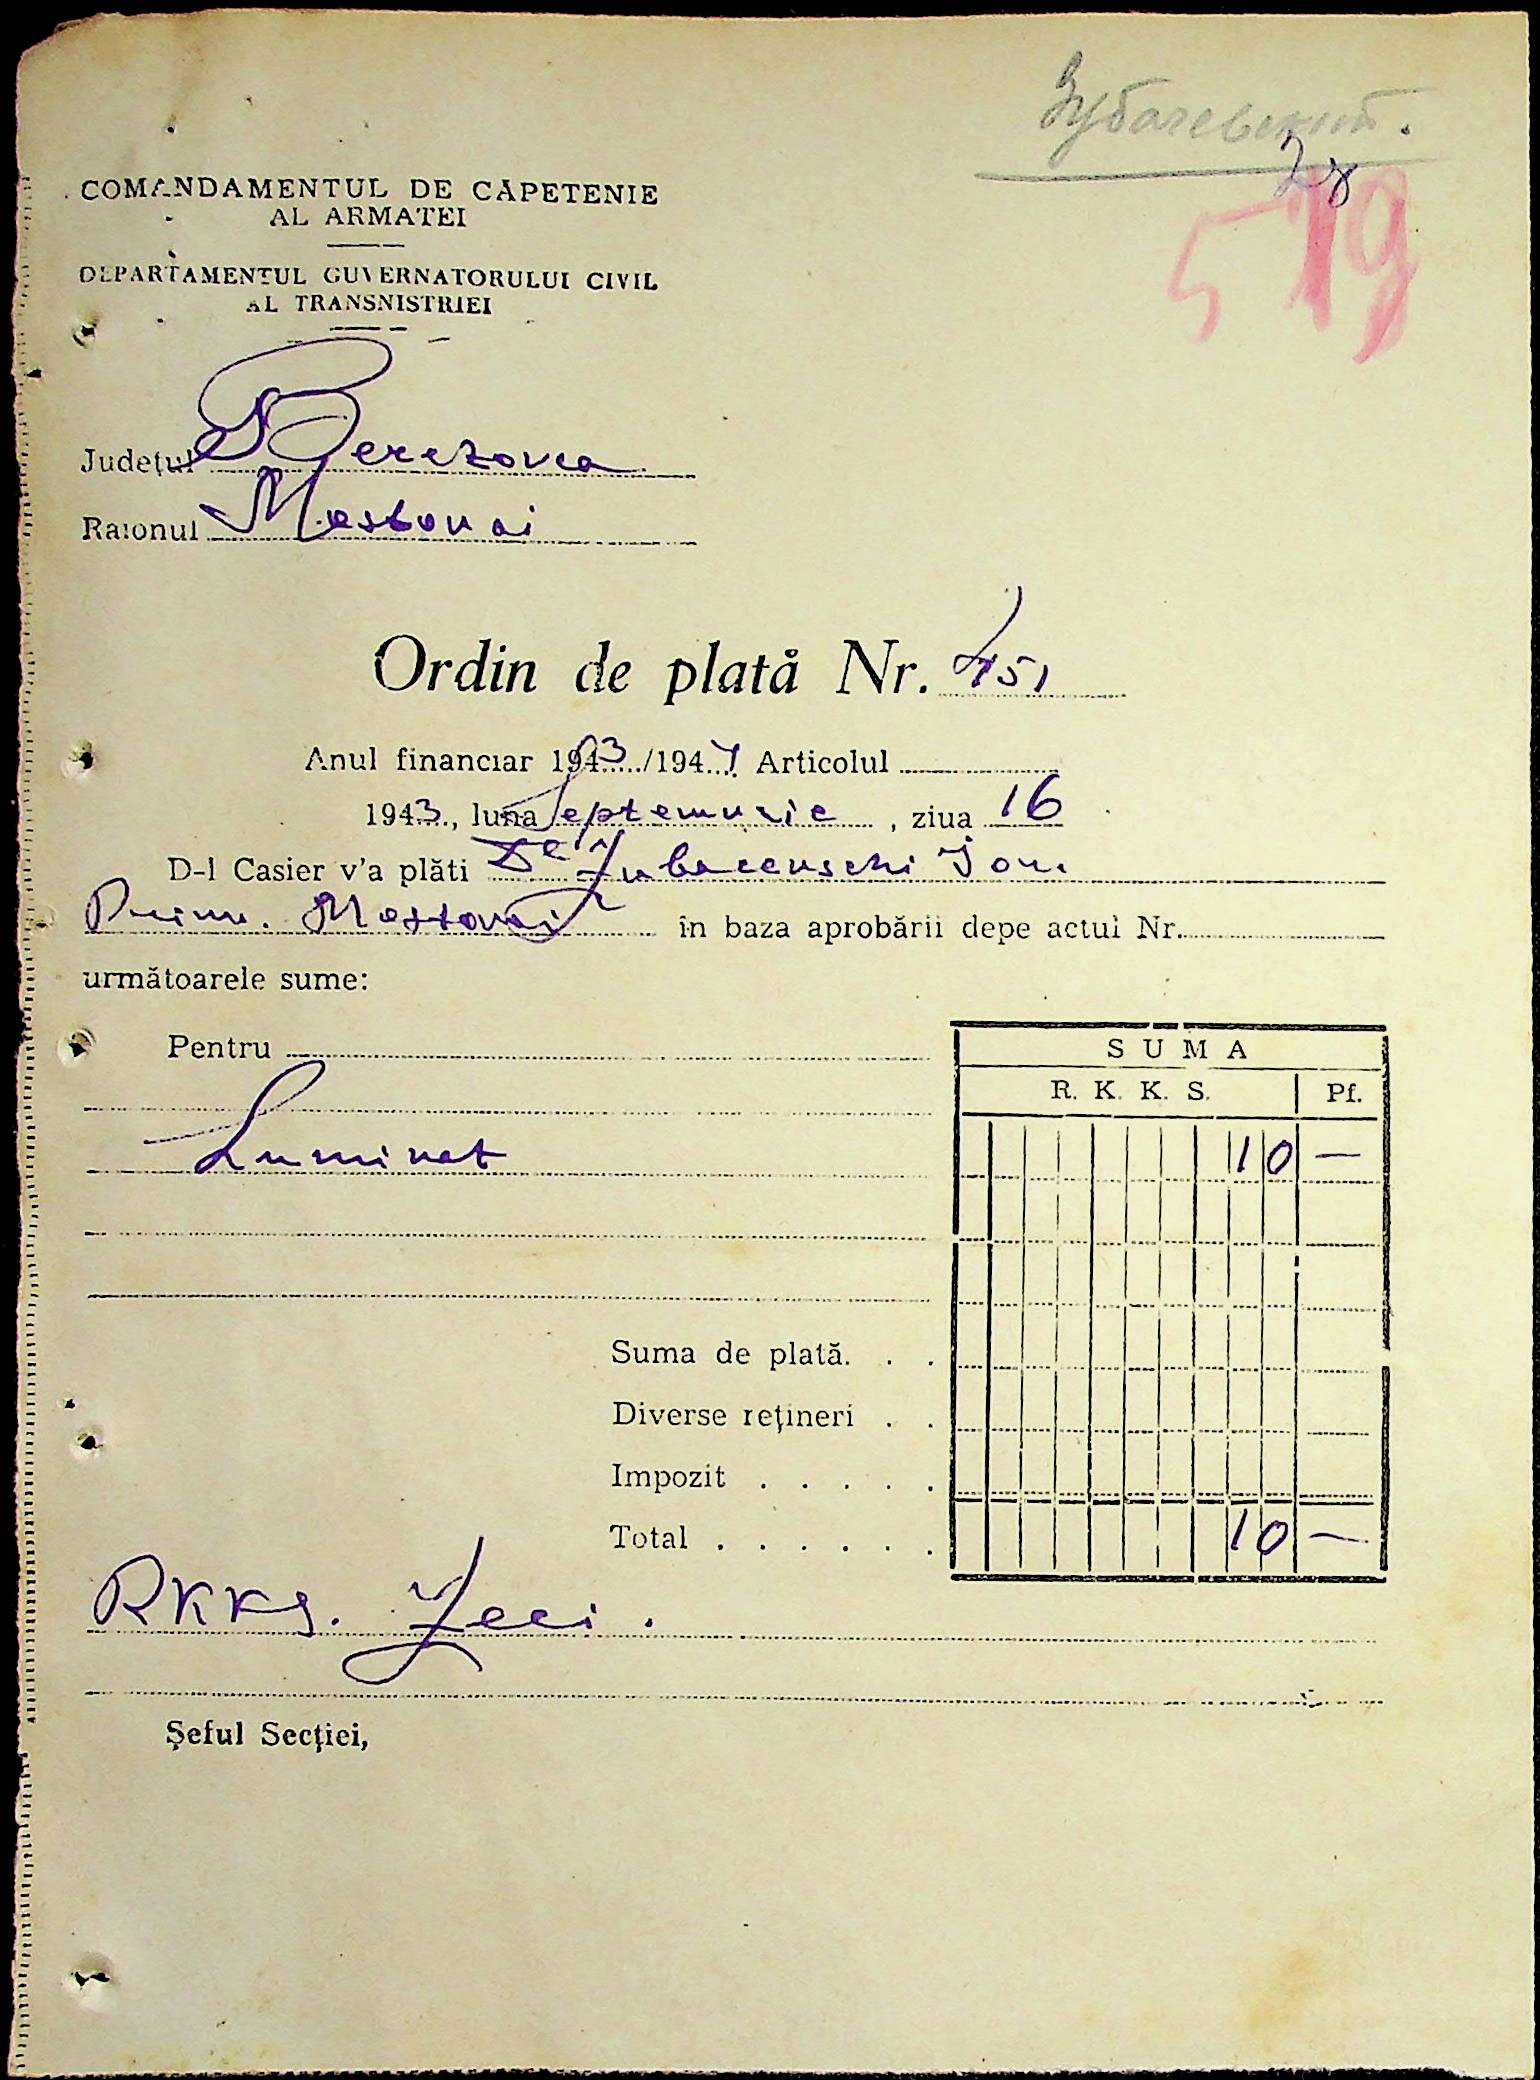 Зубачевский.
28
519
COMANDAMENTUL DE CĂPETENIE
AL ARMATEI
DEPARTAMENTUL GUVERNATORULUI CIVIL
AL TRANSNISTRIEI
Județul Berezovca
Raionul Mostovoi
Ordin de plată Nr. 451
Anul financiar 1943/1944 Articolul
1943, luna Septemvrie, ziua 16
D-l Casier v'a plăti Dlui Zubacevschi Ion
Prim. Mostovoi în baza aprobării depe actul Nr.
următoarele sume:
Pentru
SUMA
R. K. K. S. Pf.
Luminat 10 —
Suma de plată. . .
Diverse rețineri . .
Impozit . . . . .
Total . . . . . . 10 —
RKKS. Zeci.
Șeful Secției,